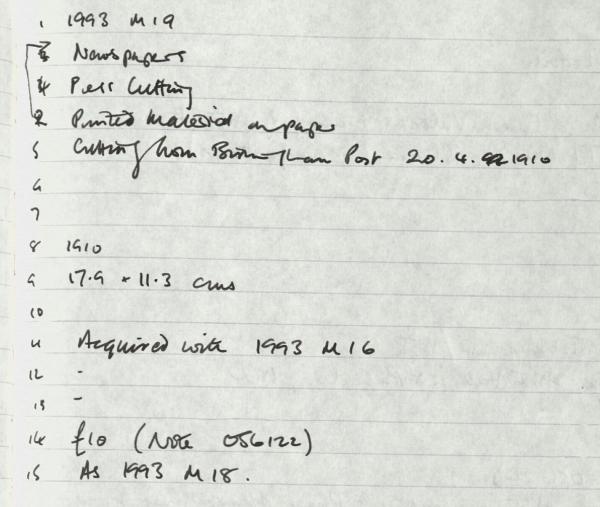 1 1993 M19
3 Newspapers
4 Press Cutting
2 Printed Material on paper
5 Cutting from Birmingham Post 20.4. 1910
6
7
8 1910
9 17.9 × 11.3 cms
10
11 Acquired with 1993 M16
12 -
13 -
14 £10 (Note 056122)
15 As 1993 M18.